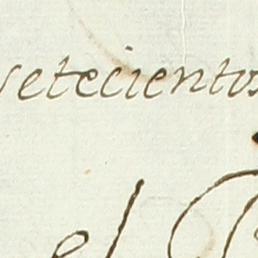 setecientos
el